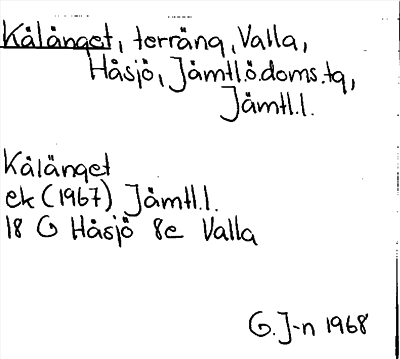 Kålänget, terräng, Valla,
Håsjö, Jämtl.ö.doms.tg,
Jämtl.l.
Kålänget
ek (1967) Jämtl.l.
18 G Håsjö 8e Valla
G. J-n 1968